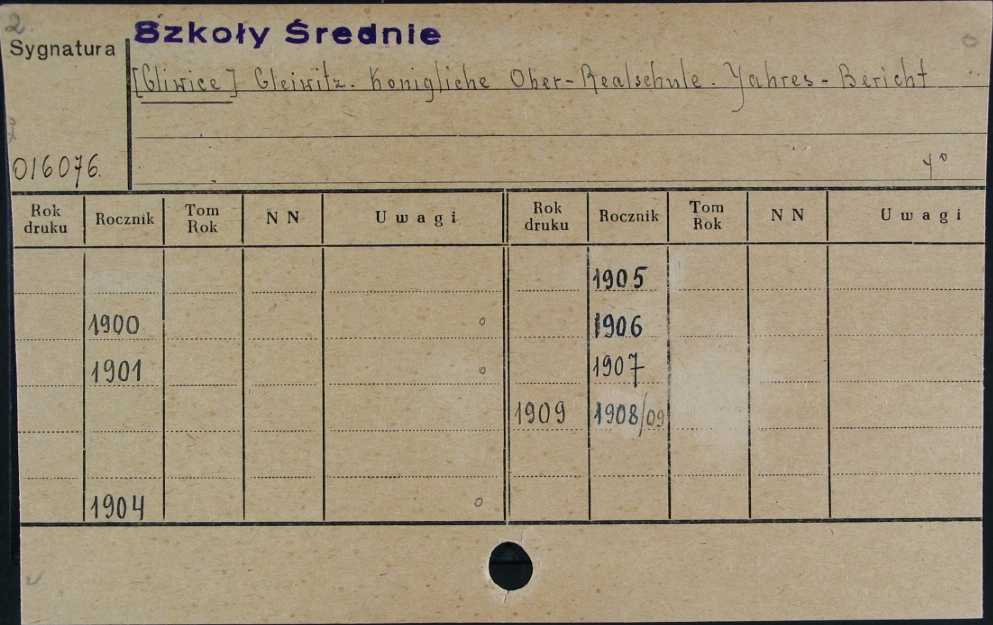 2.
Szkoły Średnie
Sygnatura
[Gliwice] Gleiwitz. Konigliche Ober-Realschule. Jahres-Bericht
016076.
4°
Rok druku Rocznik Tom Rok N N Uwagi Rok druku Rocznik Tom Rok N N Uwagi
1905
1900 o 1906
1901 o 1907
1909 1908/09
1904 o